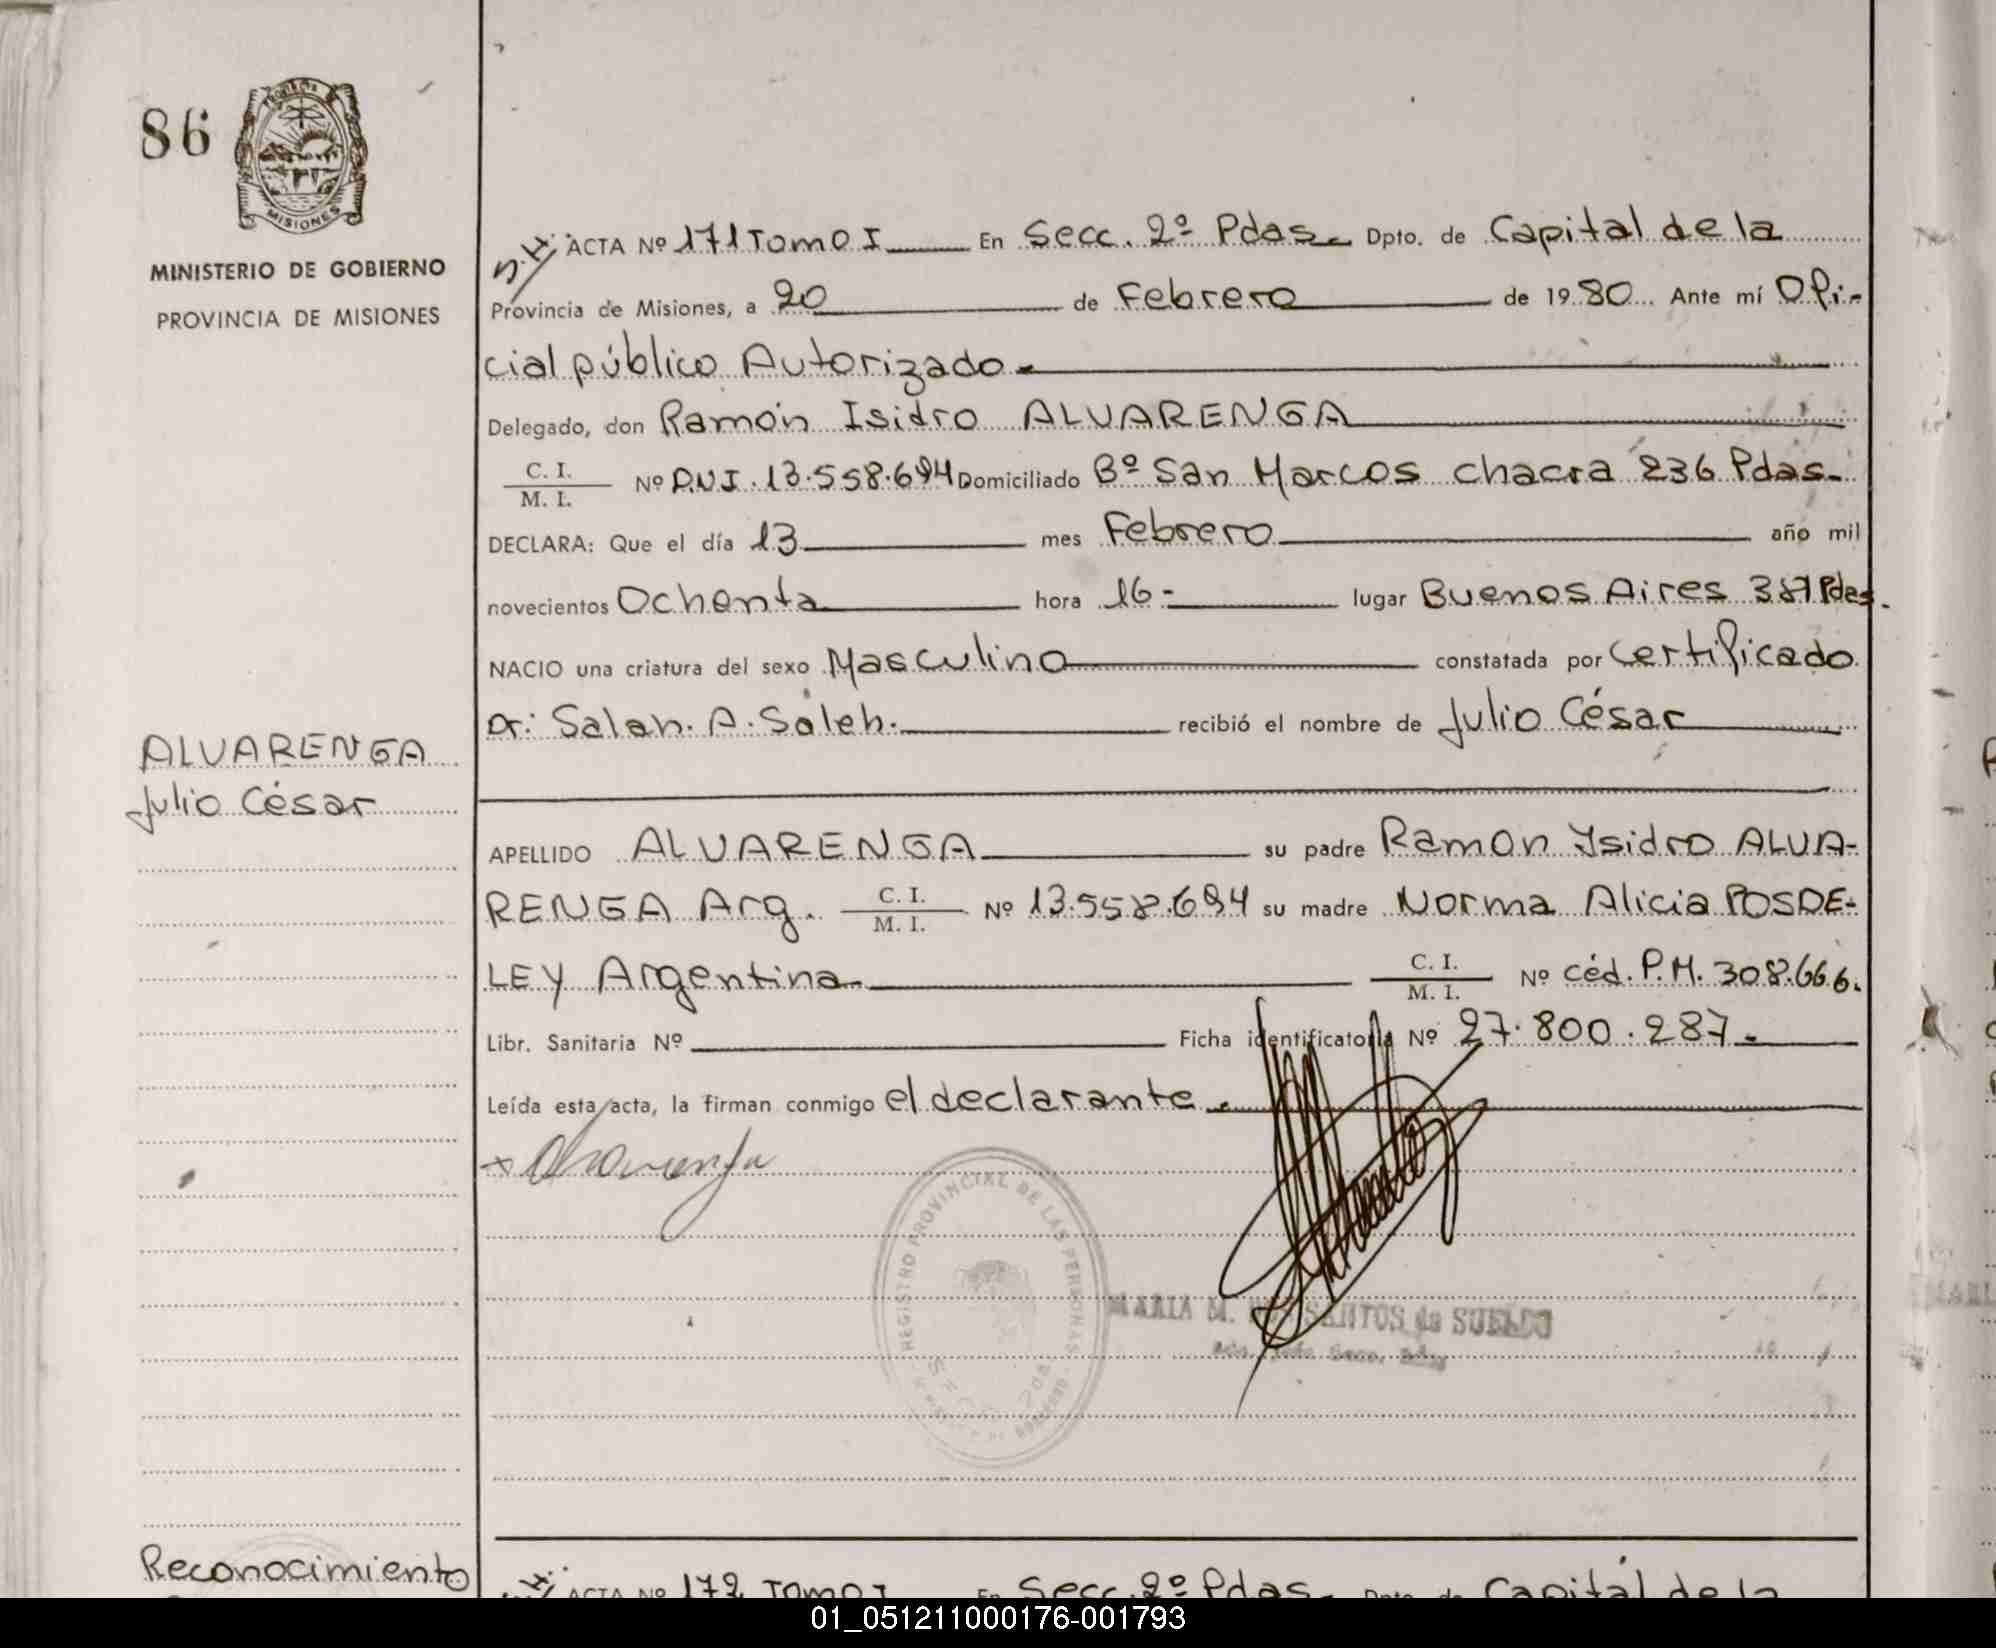 86
MISIONES
MINISTERIO DE GOBIERNO
PROVINCIA DE MISIONES
ACTA Nº 171 Tomo I En Secc. 2º Pdas. Dpto. de Capital de la
Provincia de Misiones, a 20 de Febrero de 1980 Ante mí Ofi-
cial público Autorizado.
Delegado, don Ramón Isidro ALVARENGA
C. I.
M. I. Nº D.N.I. 13.558.694 Domiciliado Bº San Marcos chacra 236 Pdas.
DECLARA: Que el día 13 mes Febrero año mil
novecientos Ochenta hora 16- lugar Buenos Aires 387 Pdas.
NACIO una criatura del sexo Masculino constatada por certificado
Dr: Salah. A. Saleh. recibió el nombre de Julio César
ALVARENGA
Julio César
APELLIDO ALVARENGA su padre Ramón Isidro ALVA-
RENGA Arg. C. I.
M. I. Nº 13.558.694 su madre Norma Alicia POSDE-
LEY Argentina. C. I.
M. I. Nº céd. P.M. 308.666.
Libr. Sanitaria Nº Ficha identificatoria Nº 27.800.287.
Leída esta acta, la firman conmigo el declarante.
REGISTRO PROVINCIAL DE LAS PERSONAS
MARIA M. SANTOS de SUELDO
Reconocimiento
ACTA Nº 172 Tomo I En Secc. 2º Pdas. Dpto. de Capital de la
01_051211000176-001793